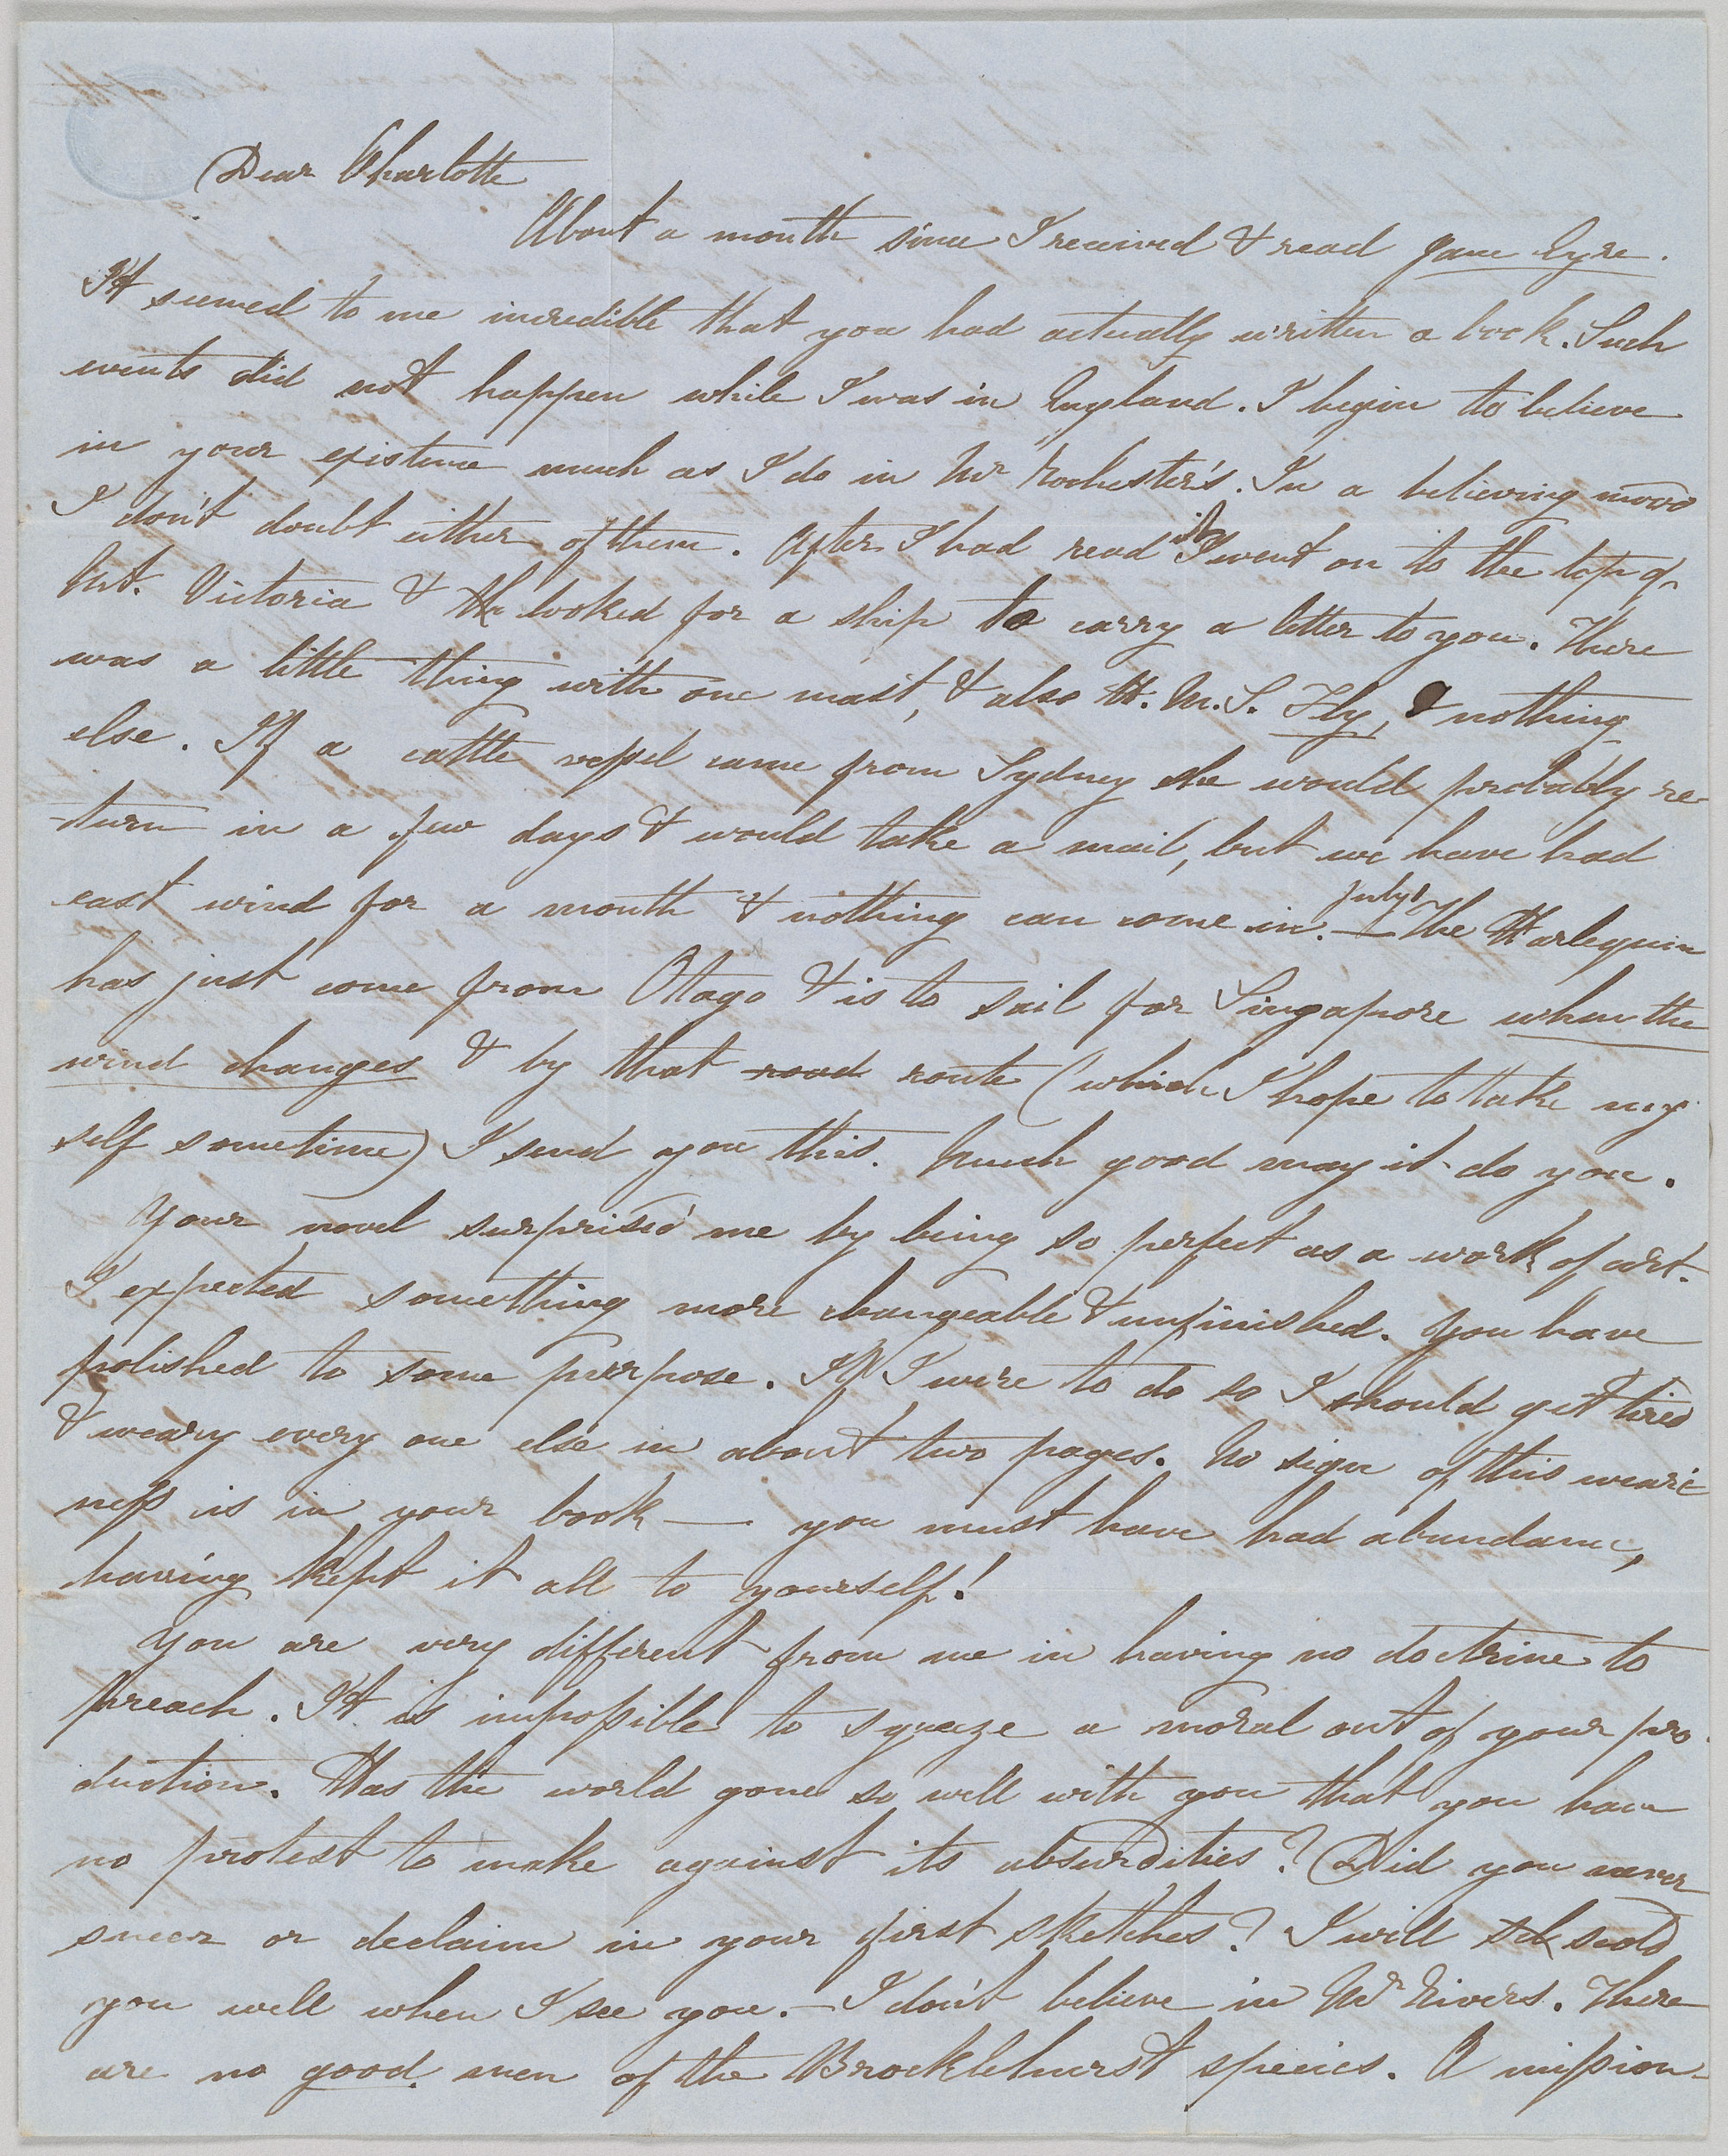 Dear Charlotte
About a month since I received & read Jane Eyre.
It seemed to me incredible that you had actually written a book. Such
events did not happen while I was in England. I begin to believe
in your existence much as I do in Mr Rochester's. In a believing mood
I don't doubt either of them. After I had read it I went on to the top of
Mt. Victoria & looked for a ship to carry a letter to you. There
was a little thing with one mast, & also H.M.S. Fly, & nothing
else. If a cattle vessel came from Sydney she would probably re-
turn in a few days & would take a mail, but we have had
east wind for a month & nothing can come in. — July 1 The Harlequin
has just come from Otago & is to sail for Singapore when the
wind changes & by that road route (which I hope to take my
self sometime) I send you this. Much good may it do you.
Your novel surprised me by being so perfect as a work of art.
I expected something more changeable & unfinished. You have
polished to some purpose. If I were to do so I should get tired
& weary every one else in about two pages. No sign of this weari
ness is in your book — you must have had abundance,
having kept it all to yourself!
You are very different from me in having no doctrine to
preach. It is impossible to squeeze a moral out of your pro
duction. Has the world gone so well with you that you have
no protest to make against its absurdities? Did you never
sneer or declaim in your first sketches? I will scold
you well when I see you. — I don't believe in Mr Rivers. There
are no good men of the Brocklehurst species. A mission-